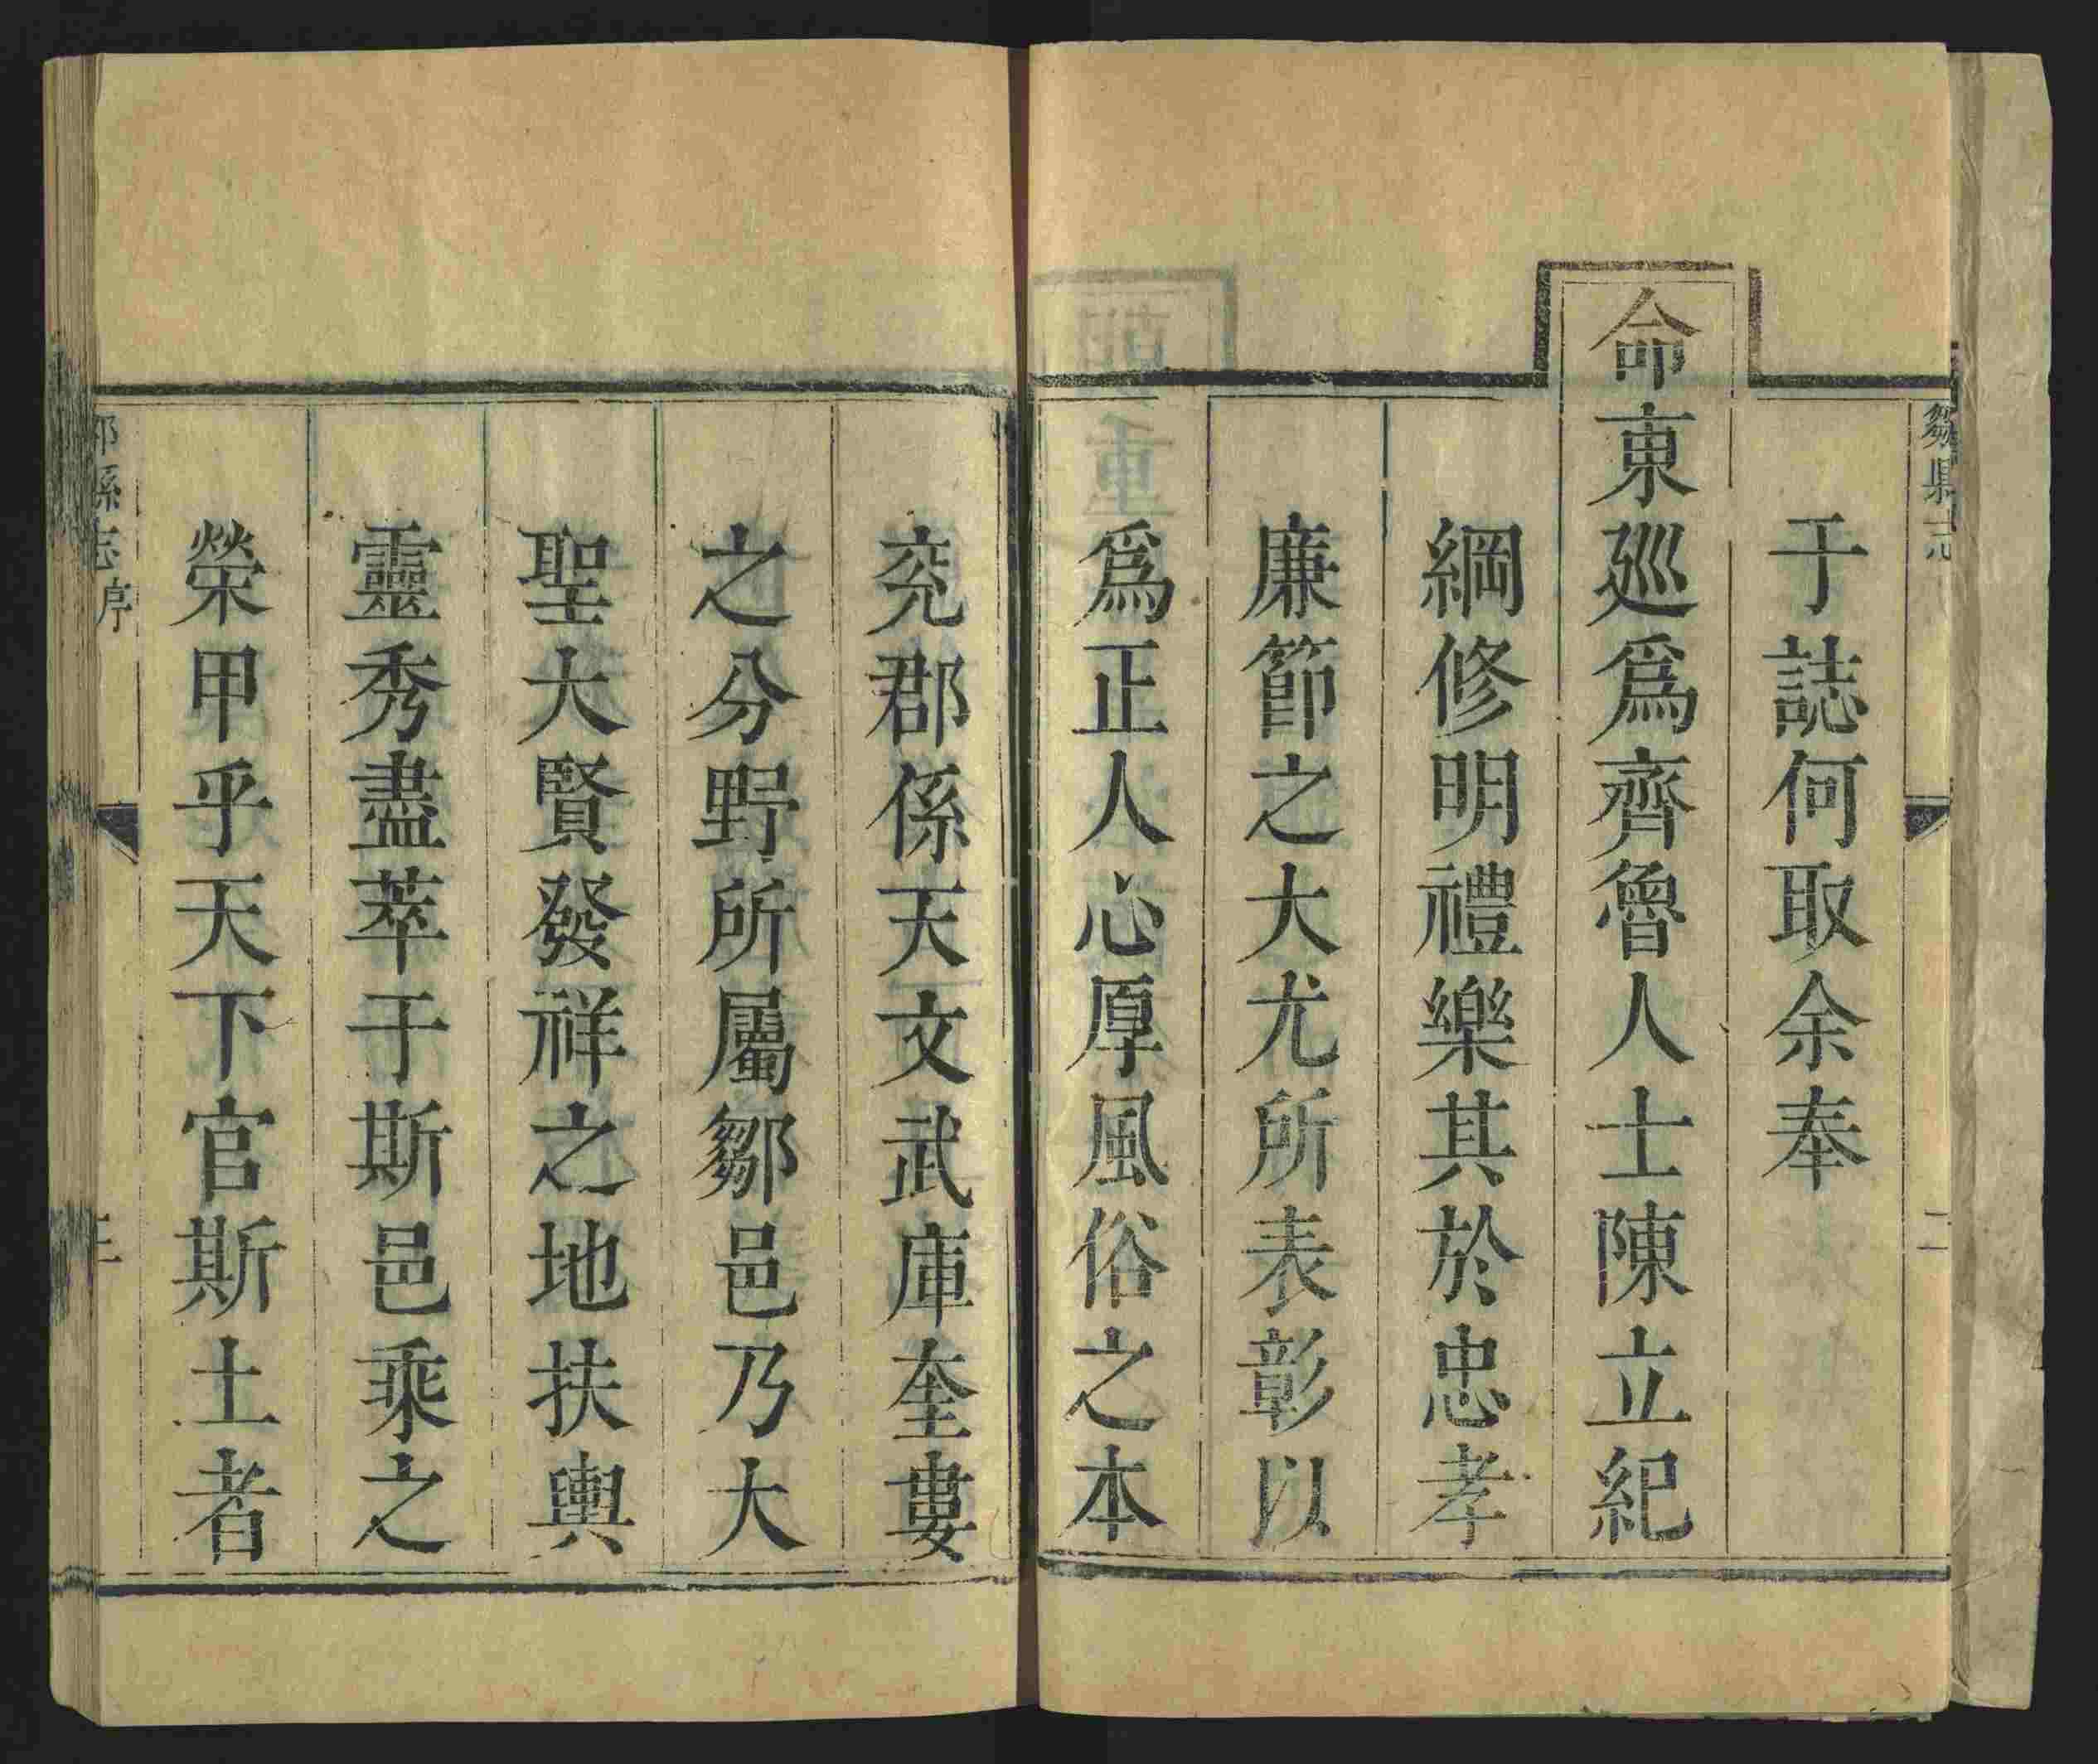 鄒縣志
二
于誌何取余奉
命東廵爲齊魯人士陳立紀
綱修明禮樂其於忠孝
廉節之大尤所表彰以
爲正人心厚風俗之本
兖郡係天文武庫奎婁
之分野所屬鄒邑乃大
聖大賢發祥之地扶輿
靈秀盡萃于斯邑乘之
榮甲乎天下官斯土者
鄒縣志序
三